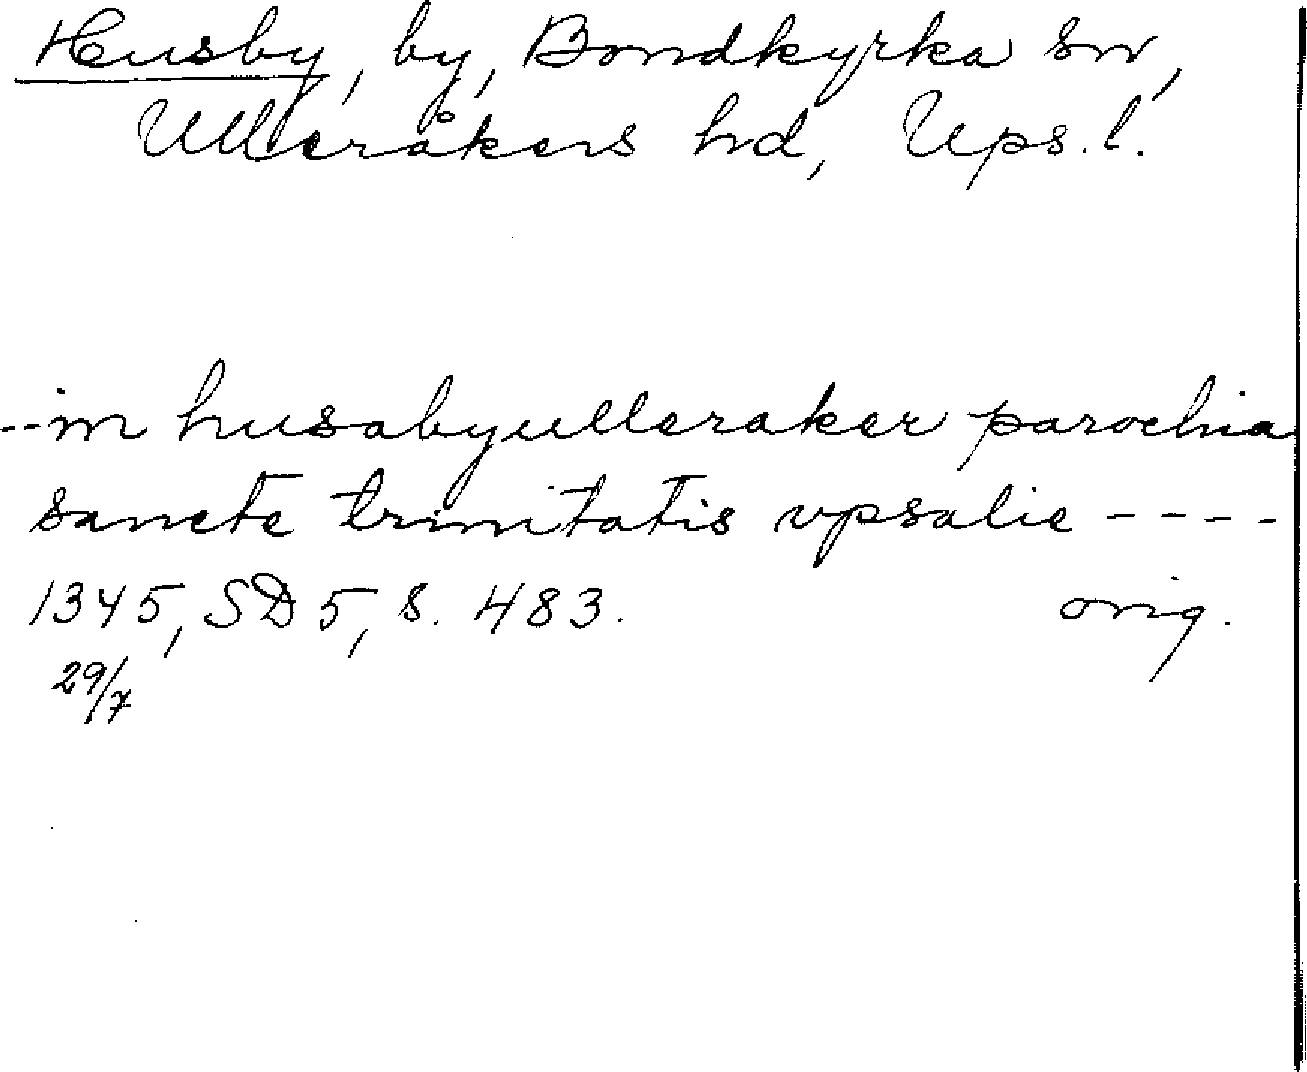 Husby, by, Bondkyrka sn,
Ulleråkers hd, Ups. l.
--in husabyulleraker parochia
sancte trinitatis vpsalie ----
1345, SD 5, s. 483. orig.
29/7